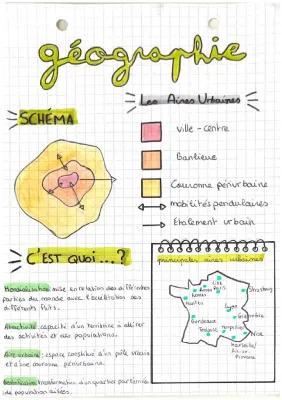 géographie
Les Aires Urbaines
SCHÉMA
ville - centre
Banlieue
Couronne périurbaine
mobilités pendulaires
Étalement urbain
C'EST QUOI...?
mise en relation des différentes
parties du monde avec l'accélération des
différents flux.
Attractivité: capacité d'un territoire à attirer
des activités et des populations.
Aire urbaine: espace constitué d'un pôle urbain
et d'une couronne périurbaine.
transformation d'un quartier par l'arrivée
de population aisées.
principales aires urbaines
Lille
Paris
Rennes
Nantes
Strasbourg
Lyon
Grenoble
Bordeaux
Toulouse
Montpellier
Nice
Marseille/
Aix-en-
Provence